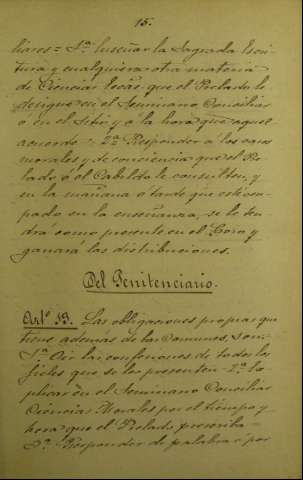 15.
liares = 1.º Enseñar la Sagrada Escri-
tura y cualquiera otra materia
de Ciencias Ecas. que el Prelado le
designe en el Seminario Conciliar
ó en el Sitio y a la hora que aquel
acuerde = 2.ª Responder a los casos
morales y de conciencia que el Pre
lado ó el Cabildo le consulten, y
en la mañana ó tarde que esté ocu-
pado en la enseñanza, se le ten-
drá como presente en el Coro y
ganará las distribuciones.
Del Penitenciario.
Artº 13. Las obligaciones propias que
tiene además de las Comunes, son:
1.ª Oir las confesiones de todos los
fieles que se le presenten - 2.ª Es
plicar en el Seminario Conciliar
Ciencias Morales por el tiempo y
hora que el Prelado prescriba -
3.ª Responder de palabra ó por